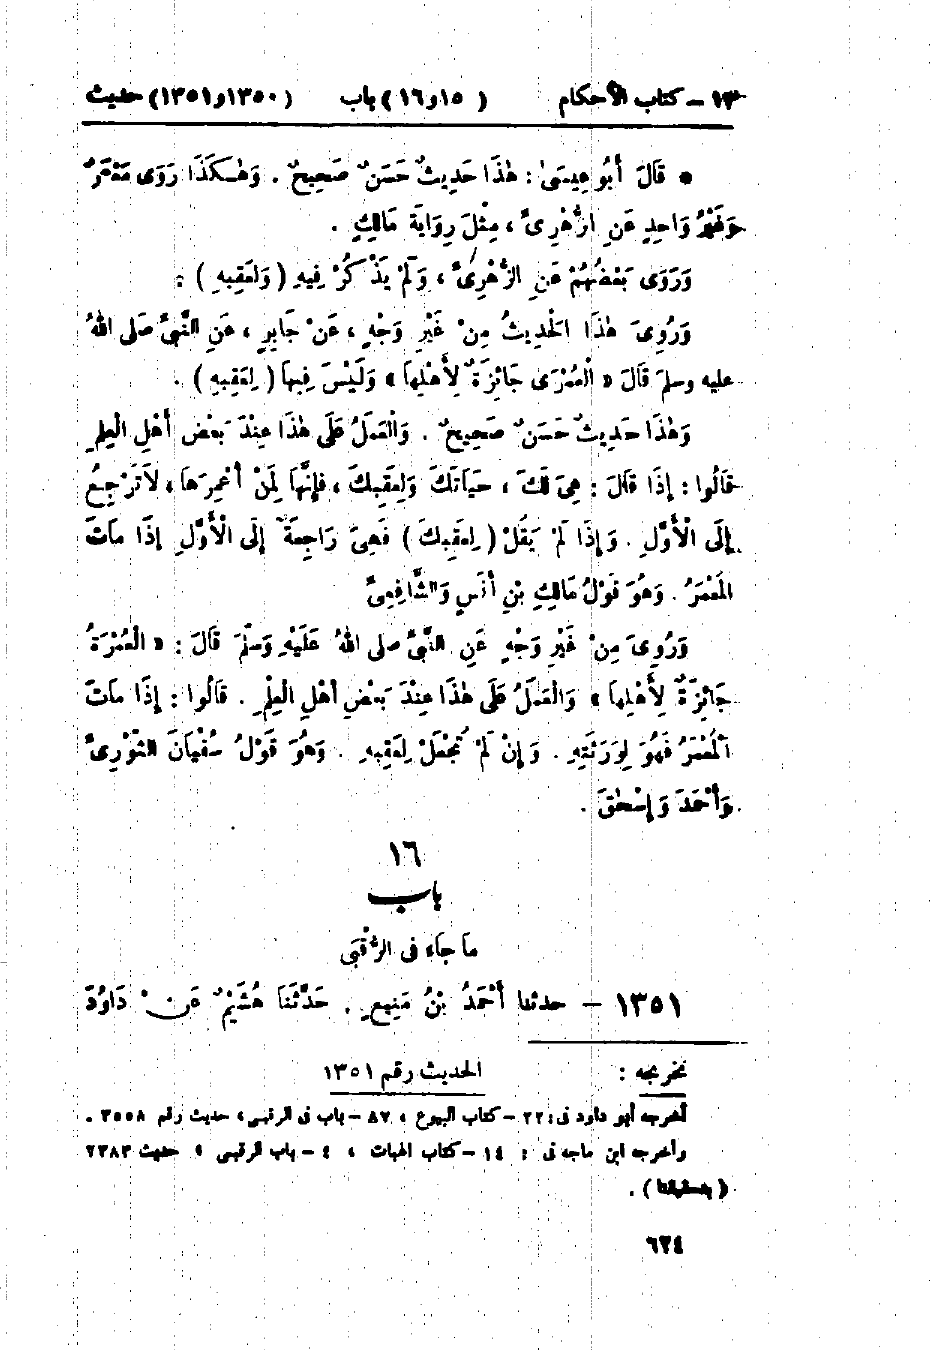 ١٣ – كتاب الأحكام ( ١٥ و١٦ ) باب (١٣٥٠و١٣٥١) حديث
● قَالَ أَبُو عِيسَىٰ : هٰذَا حَدِيثٌ حَسَنٌ صَحِيحٌ . وَهٰكَذَا رَوَى مَعْمَرٌ
وَغَيْرُ وَاحِدٍ عَنِ الزُّهْرِىِّ ، مِثْلَ رِوَايَةِ مَالِكٍ .
وَرَوَى بَعْضُهُمْ عَنِ الزُّهْرِىِّ ، وَلَمْ يَذْكُرْ فِيهِ ( وَلِعَقِبِهِ ) :
وَرُوِىَ هٰذَا الْحَدِيثُ مِنْ غَيْرِ وَجْهٍ ، عَنْ جَابِرٍ ، عَنِ النَّبِىِّ صَلى اللهُ
عليه وسلمَ قَالَ « الْعُمْرَى جَائِزَةٌ لِأَهْلِهَا » وَلَيْسَ فِيهَا ( لِعَقِبِهِ ) .
وَهٰذَا حَدِيثٌ حَسَنٌ صَحِيحٌ . وَالْعَمَلُ عَلَى هٰذَا عِنْدَ بَعْضِ أَهْلِ الْعِلْمِ
قَالُوا : إِذَا قَالَ : هِىَ لَكَ ، حَيَاتَكَ وَلِعَقِبِكَ ، فَإِنَّهَا لِمَنْ أُعْمِرَهَا ، لَا تَرْجِعُ
إِلَى الْأَوَّلِ . وَإِذَا لَمْ يَقُلْ ( لِعَقِبِكَ ) فَهِىَ رَاجِعَةٌ إِلَى الْأَوَّلِ إِذَا مَاتَ
الْمُعْمَرُ . وَهُوَ قَوْلُ مَالِكِ بْنِ أَنَسٍ وَالشَّافِعِىِّ
وَرُوِىَ مِنْ غَيْرِ وَجْهٍ عَنِ النَّبِىِّ صلى اللهُ عَلَيْهِ وَسَلَّمَ قَالَ : « الْعُمْرَةُ
جَائِزَةٌ لِأَهْلِهَا » وَالْعَمَلُ عَلَى هٰذَا عِنْدَ بَعْضِ أَهْلِ الْعِلْمِ . قَالُوا : إِذَا مَاتَ
الْمُعْمَرُ فَهُوَ لِوَرَثَتِهِ . وَإِنْ لَمْ تُجْعَلْ لِعَقِبِهِ . وَهُوَ قَوْلُ سُفْيَانَ الثَّوْرِىِّ
وَأَحْمَدَ وَإِسْحٰقَ .
١٦
باب
مَا جَاءَ فى الرُّقْبَى
١٣٥١ – حدثنا أَحْمَدُ بْنُ مَنِيعٍ . حَدَّثَنَا هُشَيْمٌ عَنْ دَاوُدَ
تخريجه :
الحديث رقم ١٣٥١
أخرجه أبو داود فى : ٢٢ – كتاب البيوع ، ٨٧ – باب فى الرقبى ، حديث رقم ٣٥٥٨ .
وأخرجه ابن ماجه فى : ١٤ – كتاب الهبات ، ٤ – باب الرقبى ، حديث ٢٣٨٣
( بتحقيقنا ) .
٦٢٤